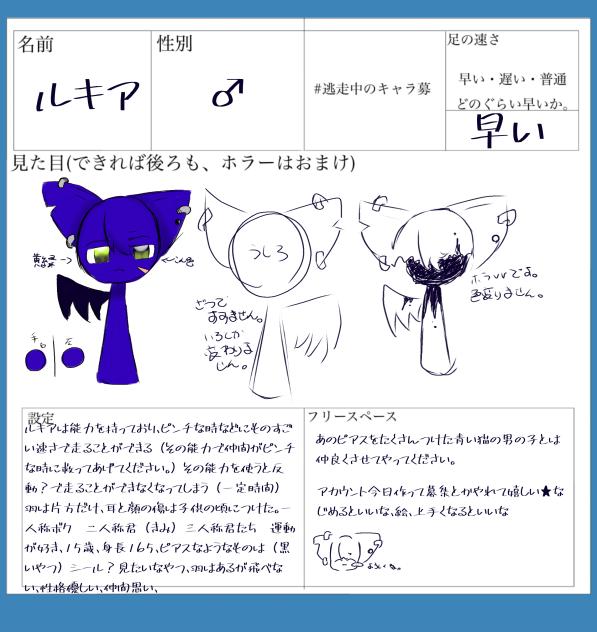 名前
性別
足の速さ
ルキア
♂
#逃走中のキャラ募
早い・遅い・普通
どのぐらい早いか。
早い
見た目(できれば後ろも、ホラーはおまけ)
うしろ
ざつで
すみません。
いろしか
変わりま
せん。
ホラvvです。
色変りません。
設定
ルキアは能力を持っており、ピンチな時などにそのすご
い速さで走ることができる(その能力で仲間がピンチ
な時に救ってあげてください。)その能力を使うと反
動?で走ることができなくなってしまう(一定時間)
羽は片方だけ、耳と顔の傷は子供の頃につけた。一
人称ボク 二人称君(きみ)三人称君たち 運動
が好き、15歳、身長165、ピアスなようなそのは(黒
いやつ)シール?見たいなやつ、羽はあるが飛べな
い、性格優しい、仲間思い、
フリースペース
あのピアスをたくさんつけた青い猫の男の子とは
仲良くさせてやってください。
アカウント今日作って募集とかやれて嬉しい★な
じめるといいな、絵、上手くなるといいな